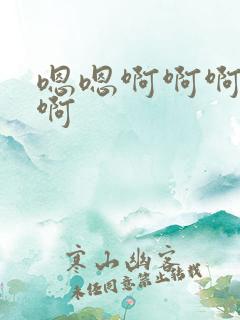 嗯嗯啊啊啊
啊
寒山幽客
未经同意禁止转载